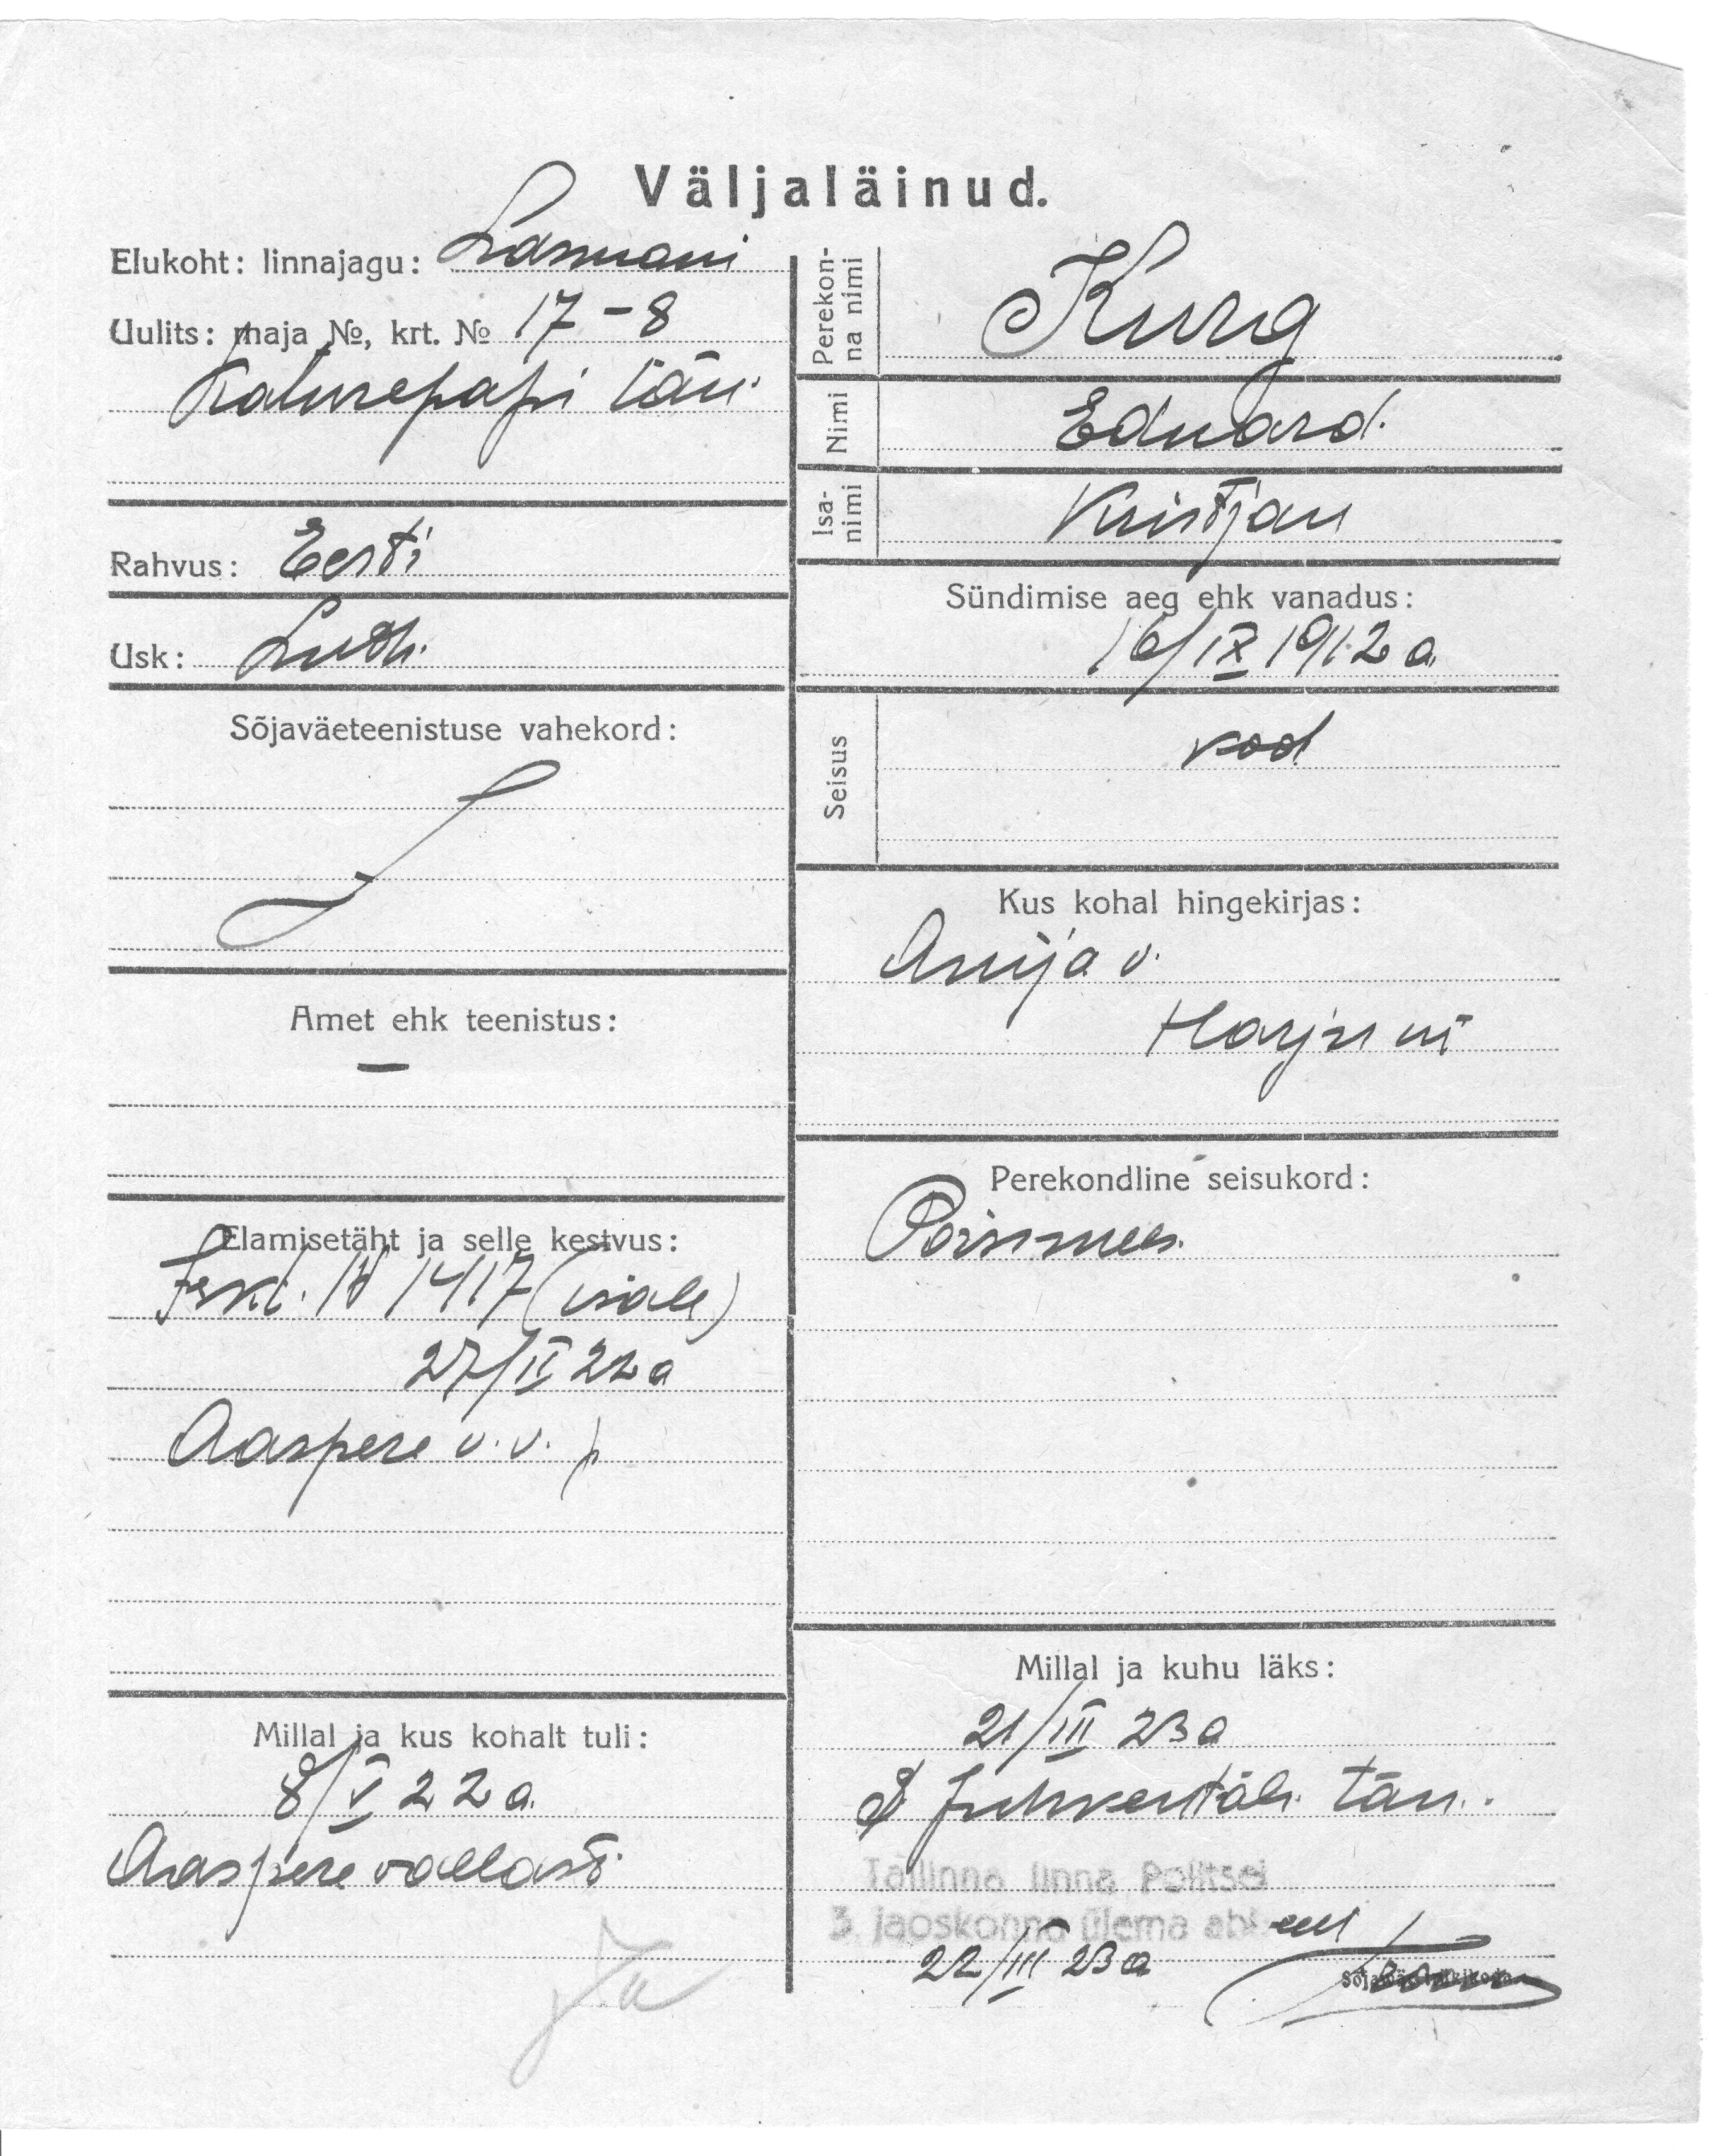 Väljaläinud.
Elukoht: linnajagu: Lasnami
Uulits: maja №, krt. № 17-8
Katusepapi tän.
Rahvus: Eesti
Usk: Luth.
Sõjaväeteenistuse vahekord:
Amet ehk teenistus:
—
Elamisetäht ja selle kestvus:
1417 (isale)
27/II 22 a
Aaspere v. v. p
Millal ja kus kohalt tuli:
8/V 22 a.
Aaspere vallast
Perekon-
na nimi
Kurg
Nimi
Eduard.
Isa-
nimi
Kristjan
Sündimise aeg ehk vanadus:
16/IX 1912 a.
Seisus
kod
Kus kohal hingekirjas:
Anija v.
Harju m
Perekondline seisukord:
Poissmees.
Millal ja kuhu läks:
21/III 23 a
Juhkentali tän.
Tallinna linna Politsei
3. jaoskonna ülema abi
22/III 23 a